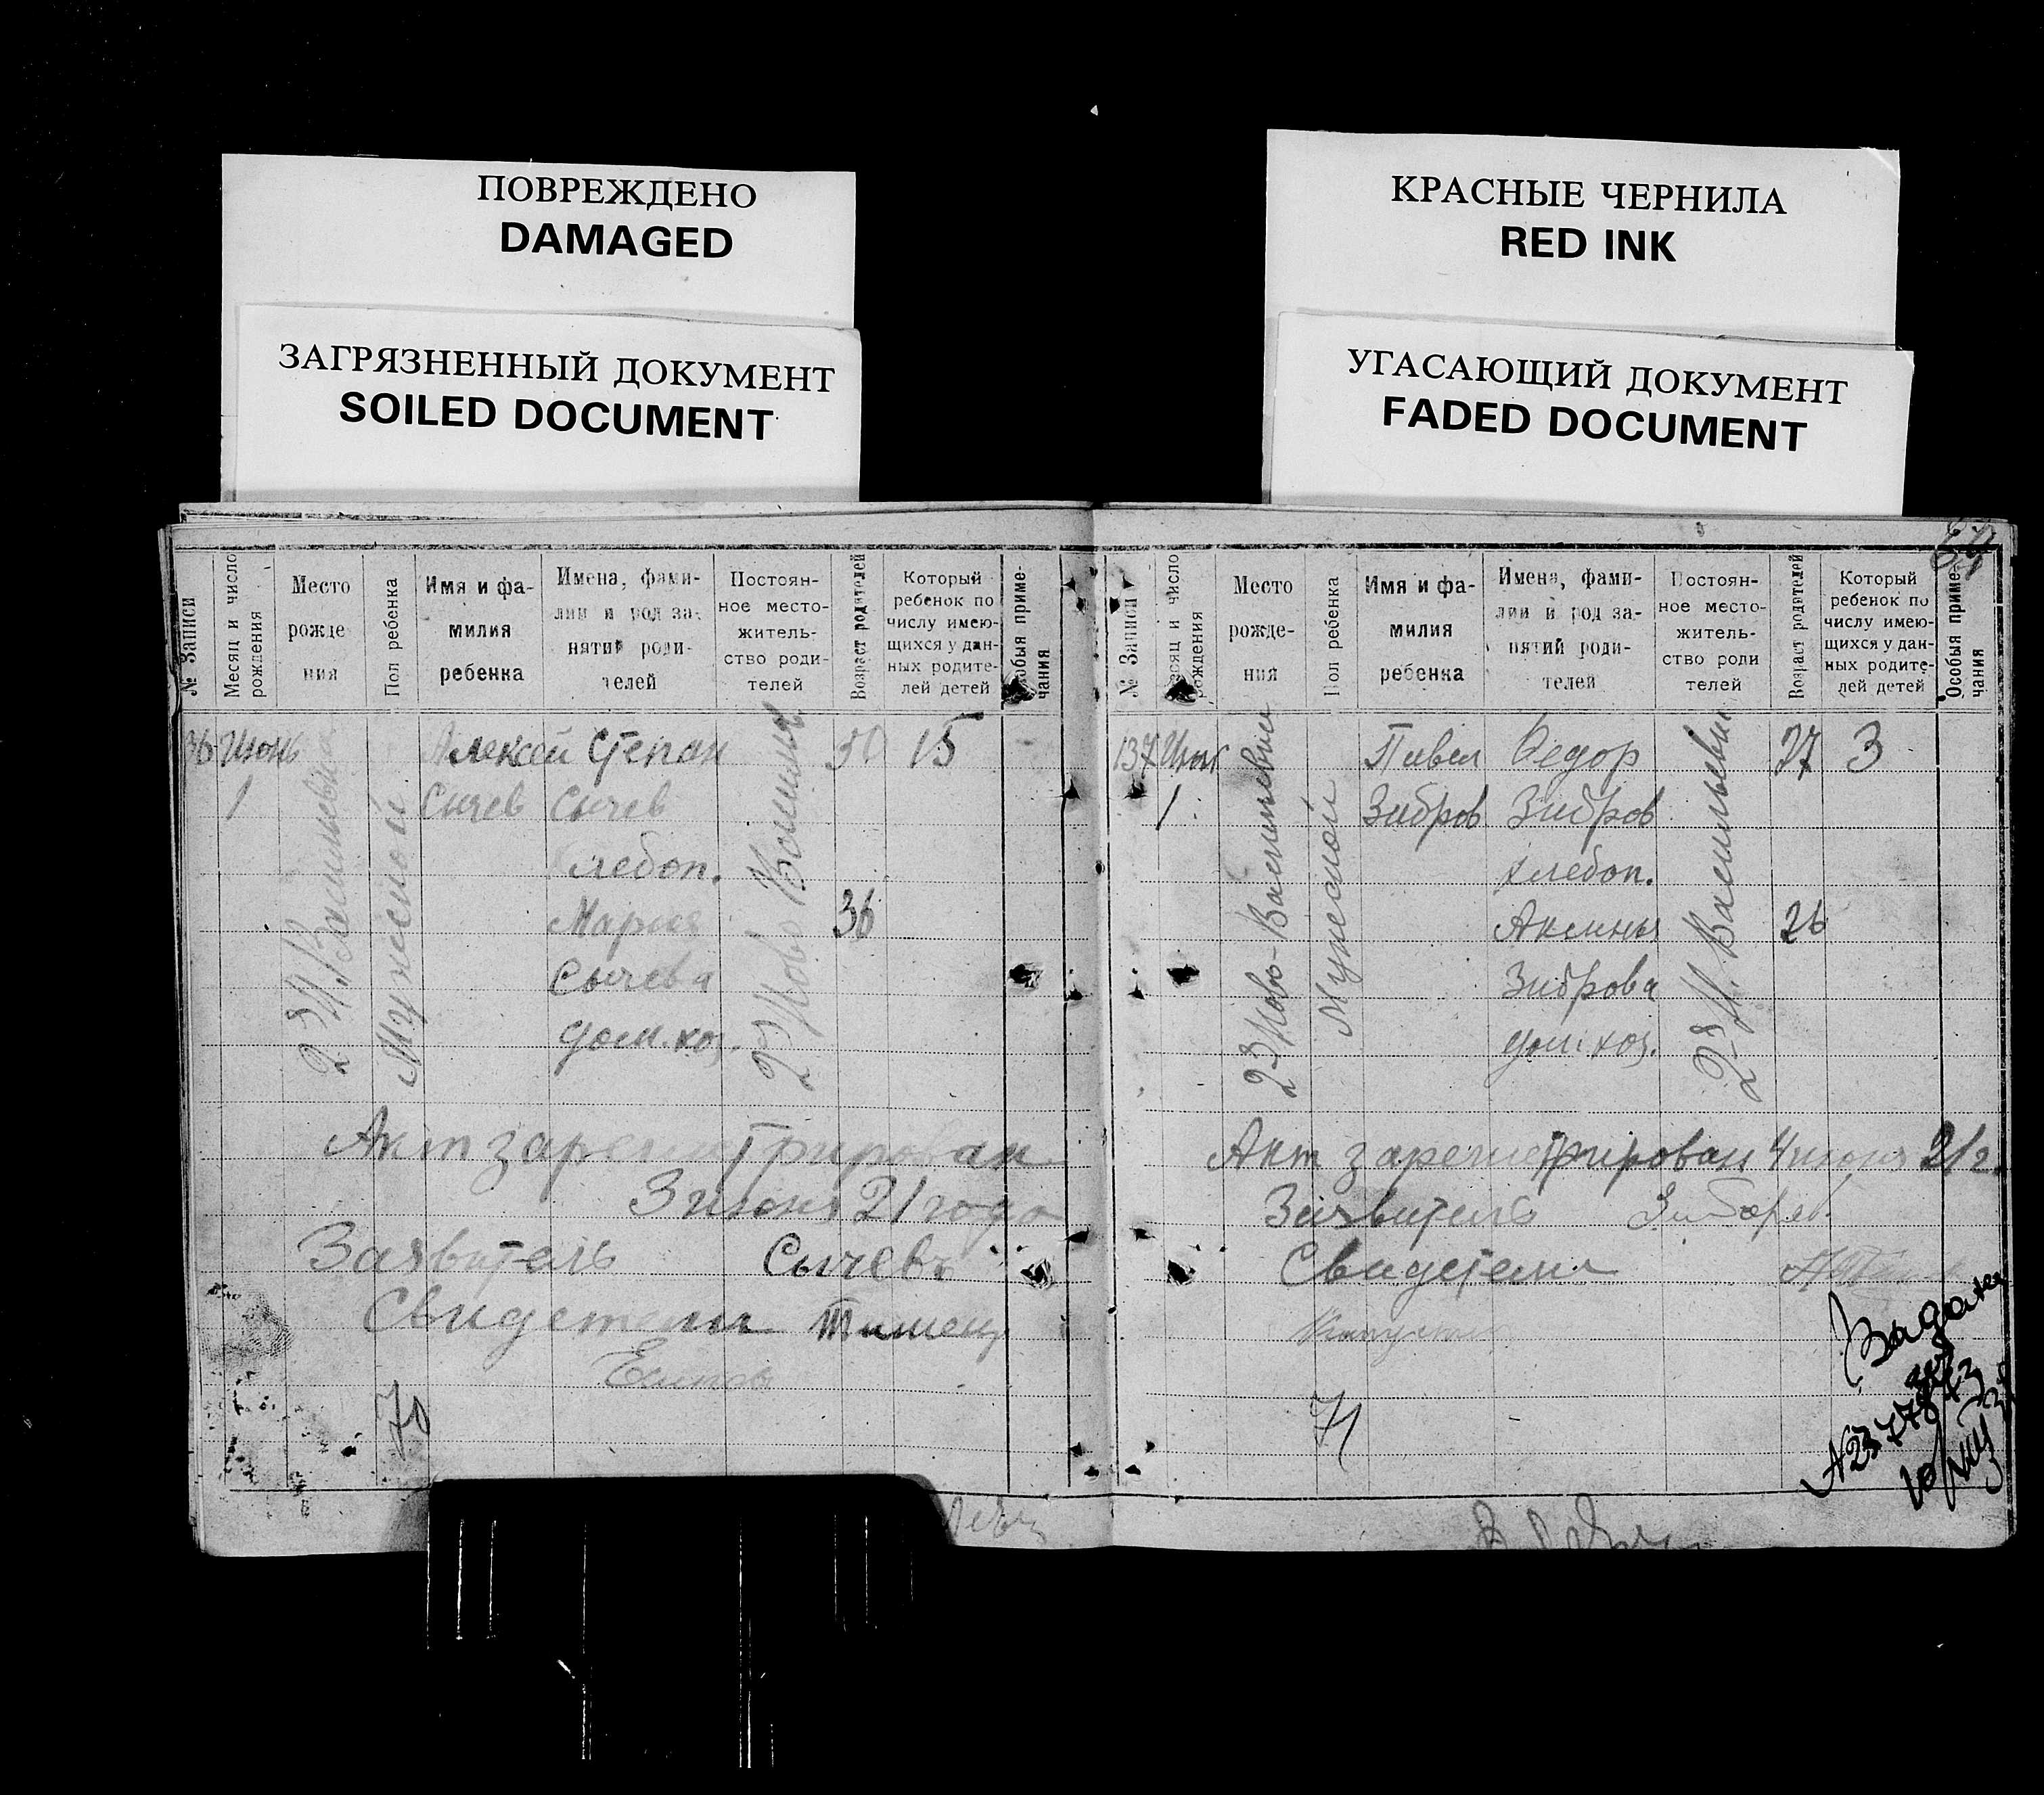 ПОВРЕЖДЕНО
DAMAGED
ЗАГРЯЗНЕННЫЙ ДОКУМЕНТ
SOILED DOCUMENT
КРАСНЫЕ ЧЕРНИЛА
RED INK
УГАСАЮЩИЙ ДОКУМЕНТ
FADED DOCUMENT
№ Записи
Месяц и число рождения
Место рожде- ния
Пол ребенка
Имя и фа- милия ребенка
Имена, фами- лии и род за- нятий роди- телей
Постоян- ное место- житель- ство роди- телей
Возраст родителей
Который ребенок по числу имею- щихся у дан- ных родите- лей детей
Особыя приме- чания
36 Июнь Алексей Степан 50 15
1 Сычев Сычев
хлебоп.
Мария 36
Сычева
дом. хоз.
Мужской
Акт зарегистрирован
3 июня 21 года
Заявитель Сычевъ
Свидетели
70
№ Записи
Месяц и число рождения
Место рожде- ния
Пол ребенка
Имя и фа- милия ребенка
Имена, фами- лии и род за- нятий роди- телей
Постоян- ное место- житель- ство роди телей
Возраст родителей
Который ребенок по числу имею- щихся у дан- ных родите- лей детей
Особыя приме- чания
137 Июнь Павел Федор 27 3
1 Зибров Зибров
хлебоп.
Аксинья 26
Зиброва
дом. хоз.
Мужской
2я Ново-Васильевка
2я Н. Васильевка
Акт зарегистрирован 4 июня 21 г.
Заявитель
Свидетели
71